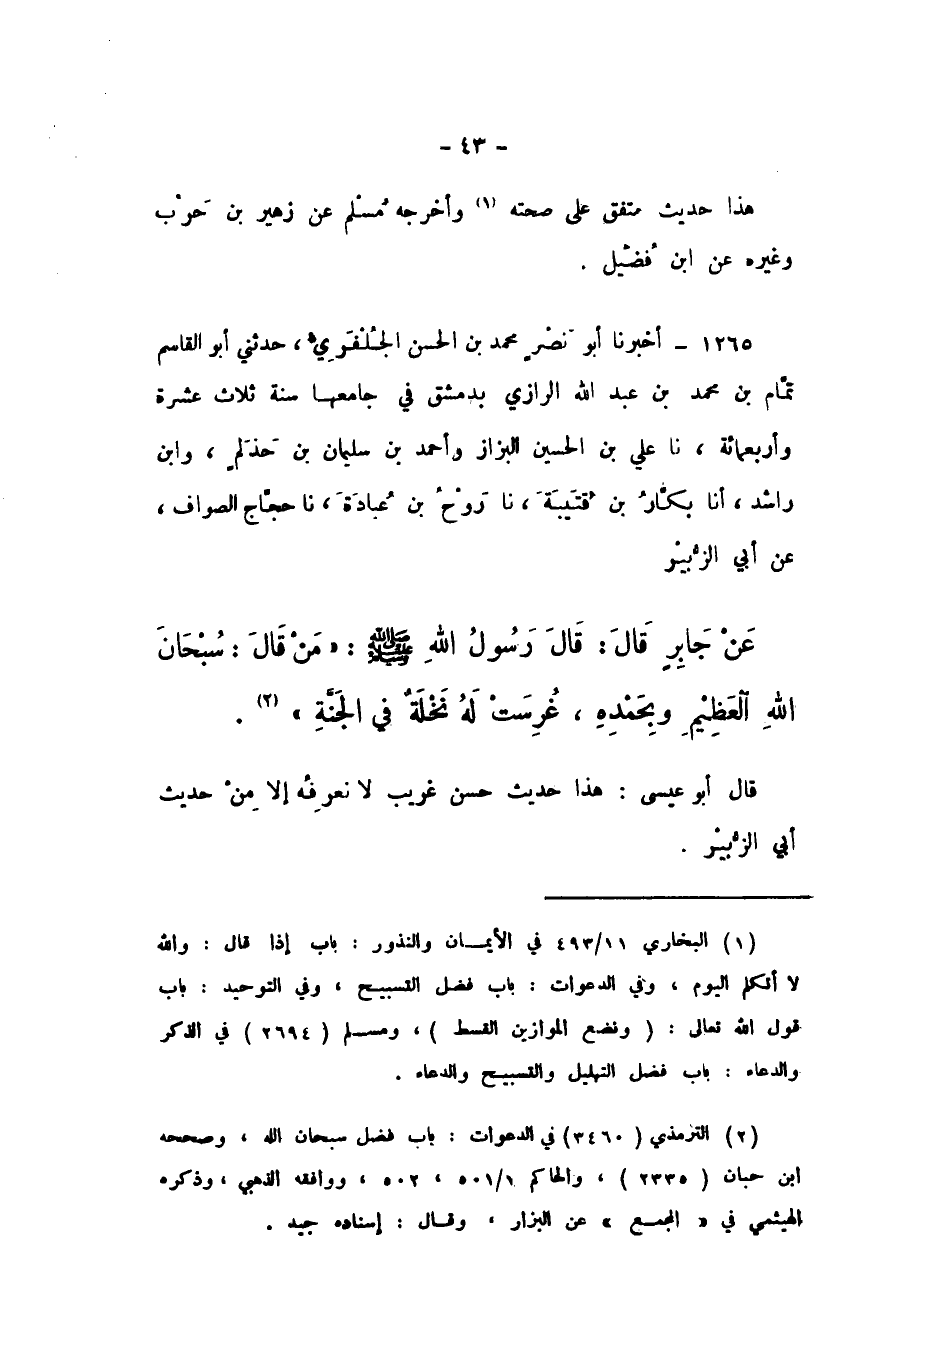 - ٤٣ -
هذا حديث متفق على صحته (١) وأخرجه مُسْلم عن زهير بن حَرْب
وغيره عن ابن فُضَيْل .
١٢٦٥ ـ أخبرنا أبو نَصْرٍ محمد بن الحسن الجُلْفَرِيُّ، حدثني أبو القاسم
تمَّام بن محمد بن عبد الله الرازي بدمشق في جامعها سنة ثلاث عشرة
وأربعمائة ، نا علي بن الحسين البزاز وأحمد بن سليمان بن حَذلَمٍ ، وابن
راشد ، أنا بكَّارُ بن قُتَيْبَةَ ، نا رَوْحُ بن عُبادَةَ ، نا حجَّاج الصواف ،
عن أبي الزُّبيْر
عَنْ جَابِرٍ قَالَ : قَالَ رَسُولُ اللهِ ﷺ : « مَنْ قَالَ : سُبْحَانَ
اللهِ ٱلْعَظِيْمِ وبِحَمْدِهِ ، غُرِسَتْ لَهُ نَخْلَةٌ في الجَنَّةِ » (٢) .
قال أبو عيسى : هذا حديث حسن غريب لا نعرِفُه إلا مِنْ حديث
أبي الزُّبيْر .
(١) البخاري ٤٩٣/١١ في الأيمـان والنذور : باب إذا قال : والله
لا أتكلم اليوم ، وفي الدعوات : باب فضل التسبيح ، وفي التوحيد : باب
قول الله تعالى : ( ونضع الموازين القسط ) ، ومسلم ( ٢٦٩٤ ) في الذكر
والدعاء : باب فضل التهليل والتسبيح والدعاء .
(٢) الترمذي ( ٣٤٦٠) في الدعوات : باب فضل سبحان الله ، وصححه
ابن حبان ( ٢٣٣٥ ) ، والحاكم ٥٠١/١ ، ٥٠٢ ، ووافقه الذهبي ، وذكره
الهيثمي في « المجمع » عن البزار ، وقال : إسناده جيد .